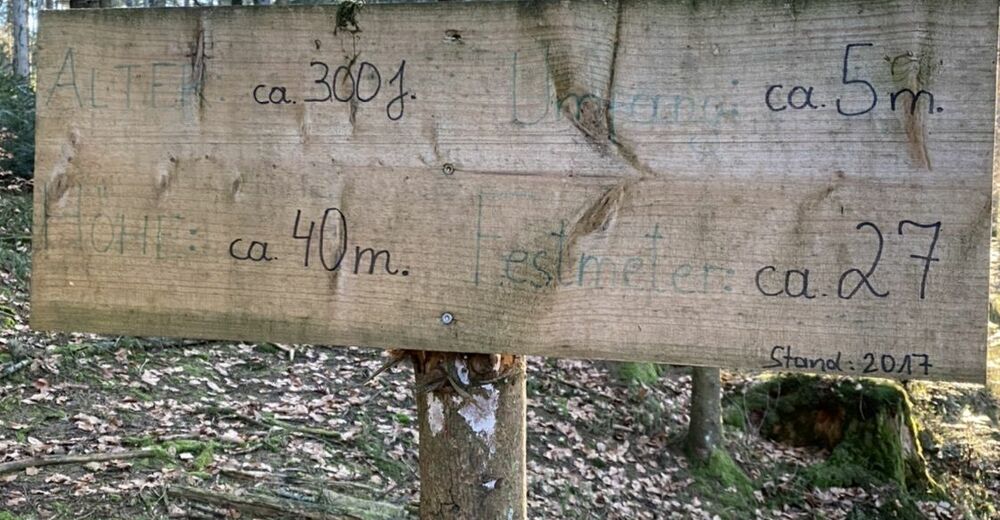 ALTER: ca. 300 J. Umfang: ca. 5 m.
HÖHE: ca. 40 m. Festmeter: ca. 27
Stand: 2017